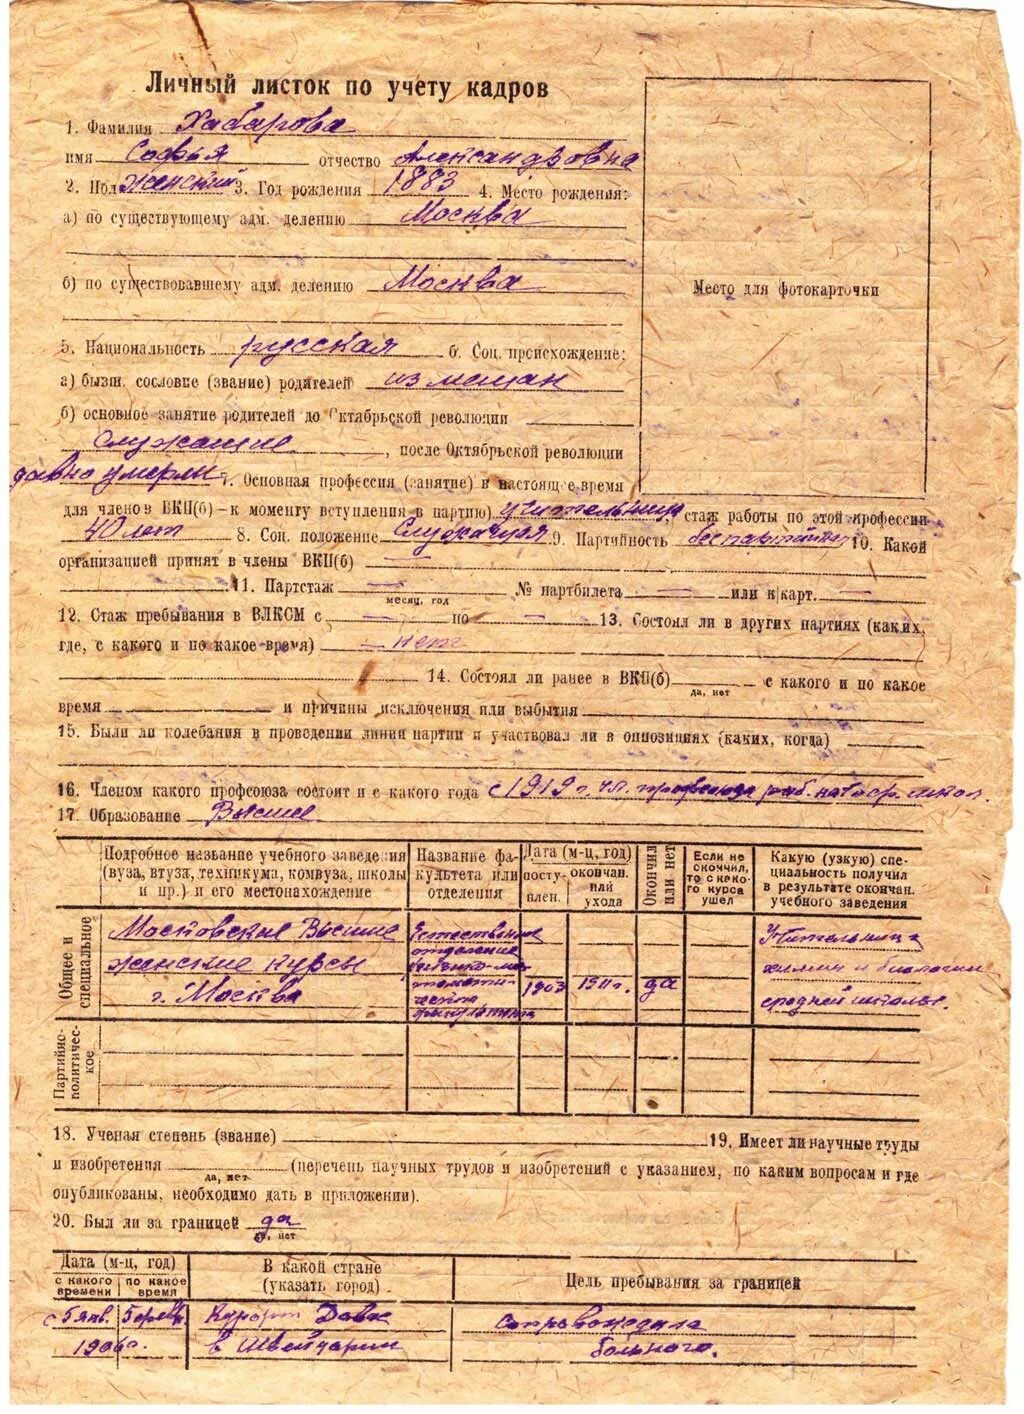 Личный листок по учету кадров
1. Фамилия Хабарова
имя Софья отчество Александровна
2. Пол женский 3. Год рождения 1883 4. Место рождения:
а) по существующему адм. делению Москва
б) по существовавшему адм. делению Москва
Место для фотокарточки
5. Национальность русская 6. Соц. происхождение:
а) бывш. сословие (звание) родителей из мещан
б) основное занятие родителей до Октябрьской революции
служащие, после Октябрьской революции
давно умерли 7. Основная профессия (занятие) в настоящее время
для членов ВКП(б) – к моменту вступления в партию) учительница, стаж работы по этой профессии
40 лет 8. Соц. положение Служащая 9. Партийность беспартийная 10. Какой
организацией принят в члены ВКП(б) —
11. Партстаж — № партбилета — или к/карт. —
месяц, год
12. Стаж пребывания в ВЛКСМ с — по — 13. Состоял ли в других партиях (каких,
где, с какого и по какое время) — нет
14. Состоял ли ранее в ВКП(б) с какого и по какое
да, нет
время и причины исключения или выбытия
15. Были ли колебания в проведении линии партии и участвовал ли в оппозициях (каких, когда)
16. Членом какого профсоюза состоит и с какого года с 1919 г. чл. профсоюза раб. нач. и ср. школ.
17. Образование Высшее
Подробное название учебного заведения (вуза, втуза, техникума, комвуза, школы и пр.) и его местонахождение
Название факультета или отделения
Дата (м-ц, год)
поступлен.
окончан. или ухода
Окончил или нет
Если не окончил, то с какого курса ушел
Какую (узкую) специальность получил в результате окончан. учебного заведения
Общее и специальное
Московские Высшие
женские курсы
г. Москва
Естественное
отделение
физико-ма-
темати-
ческого
факультета
1903 1911 г. да
Учительница
химии и биологии
средней школы.
Партийно-политическое
18. Ученая степень (звание) 19. Имеет ли научные труды
и изобретения (перечень научных трудов и изобретений с указанием, по каким вопросам и где
да, нет
опубликованы, необходимо дать в приложении).
20. Был ли за границей да
да, нет
Дата (м-ц, год)
с какого времени
по какое время
В какой стране (указать город)
Цель пребывания за границей
с 5 янв. 5
1906 г.
Курорт Давос
в Швейцарии
сопровождала
больного.